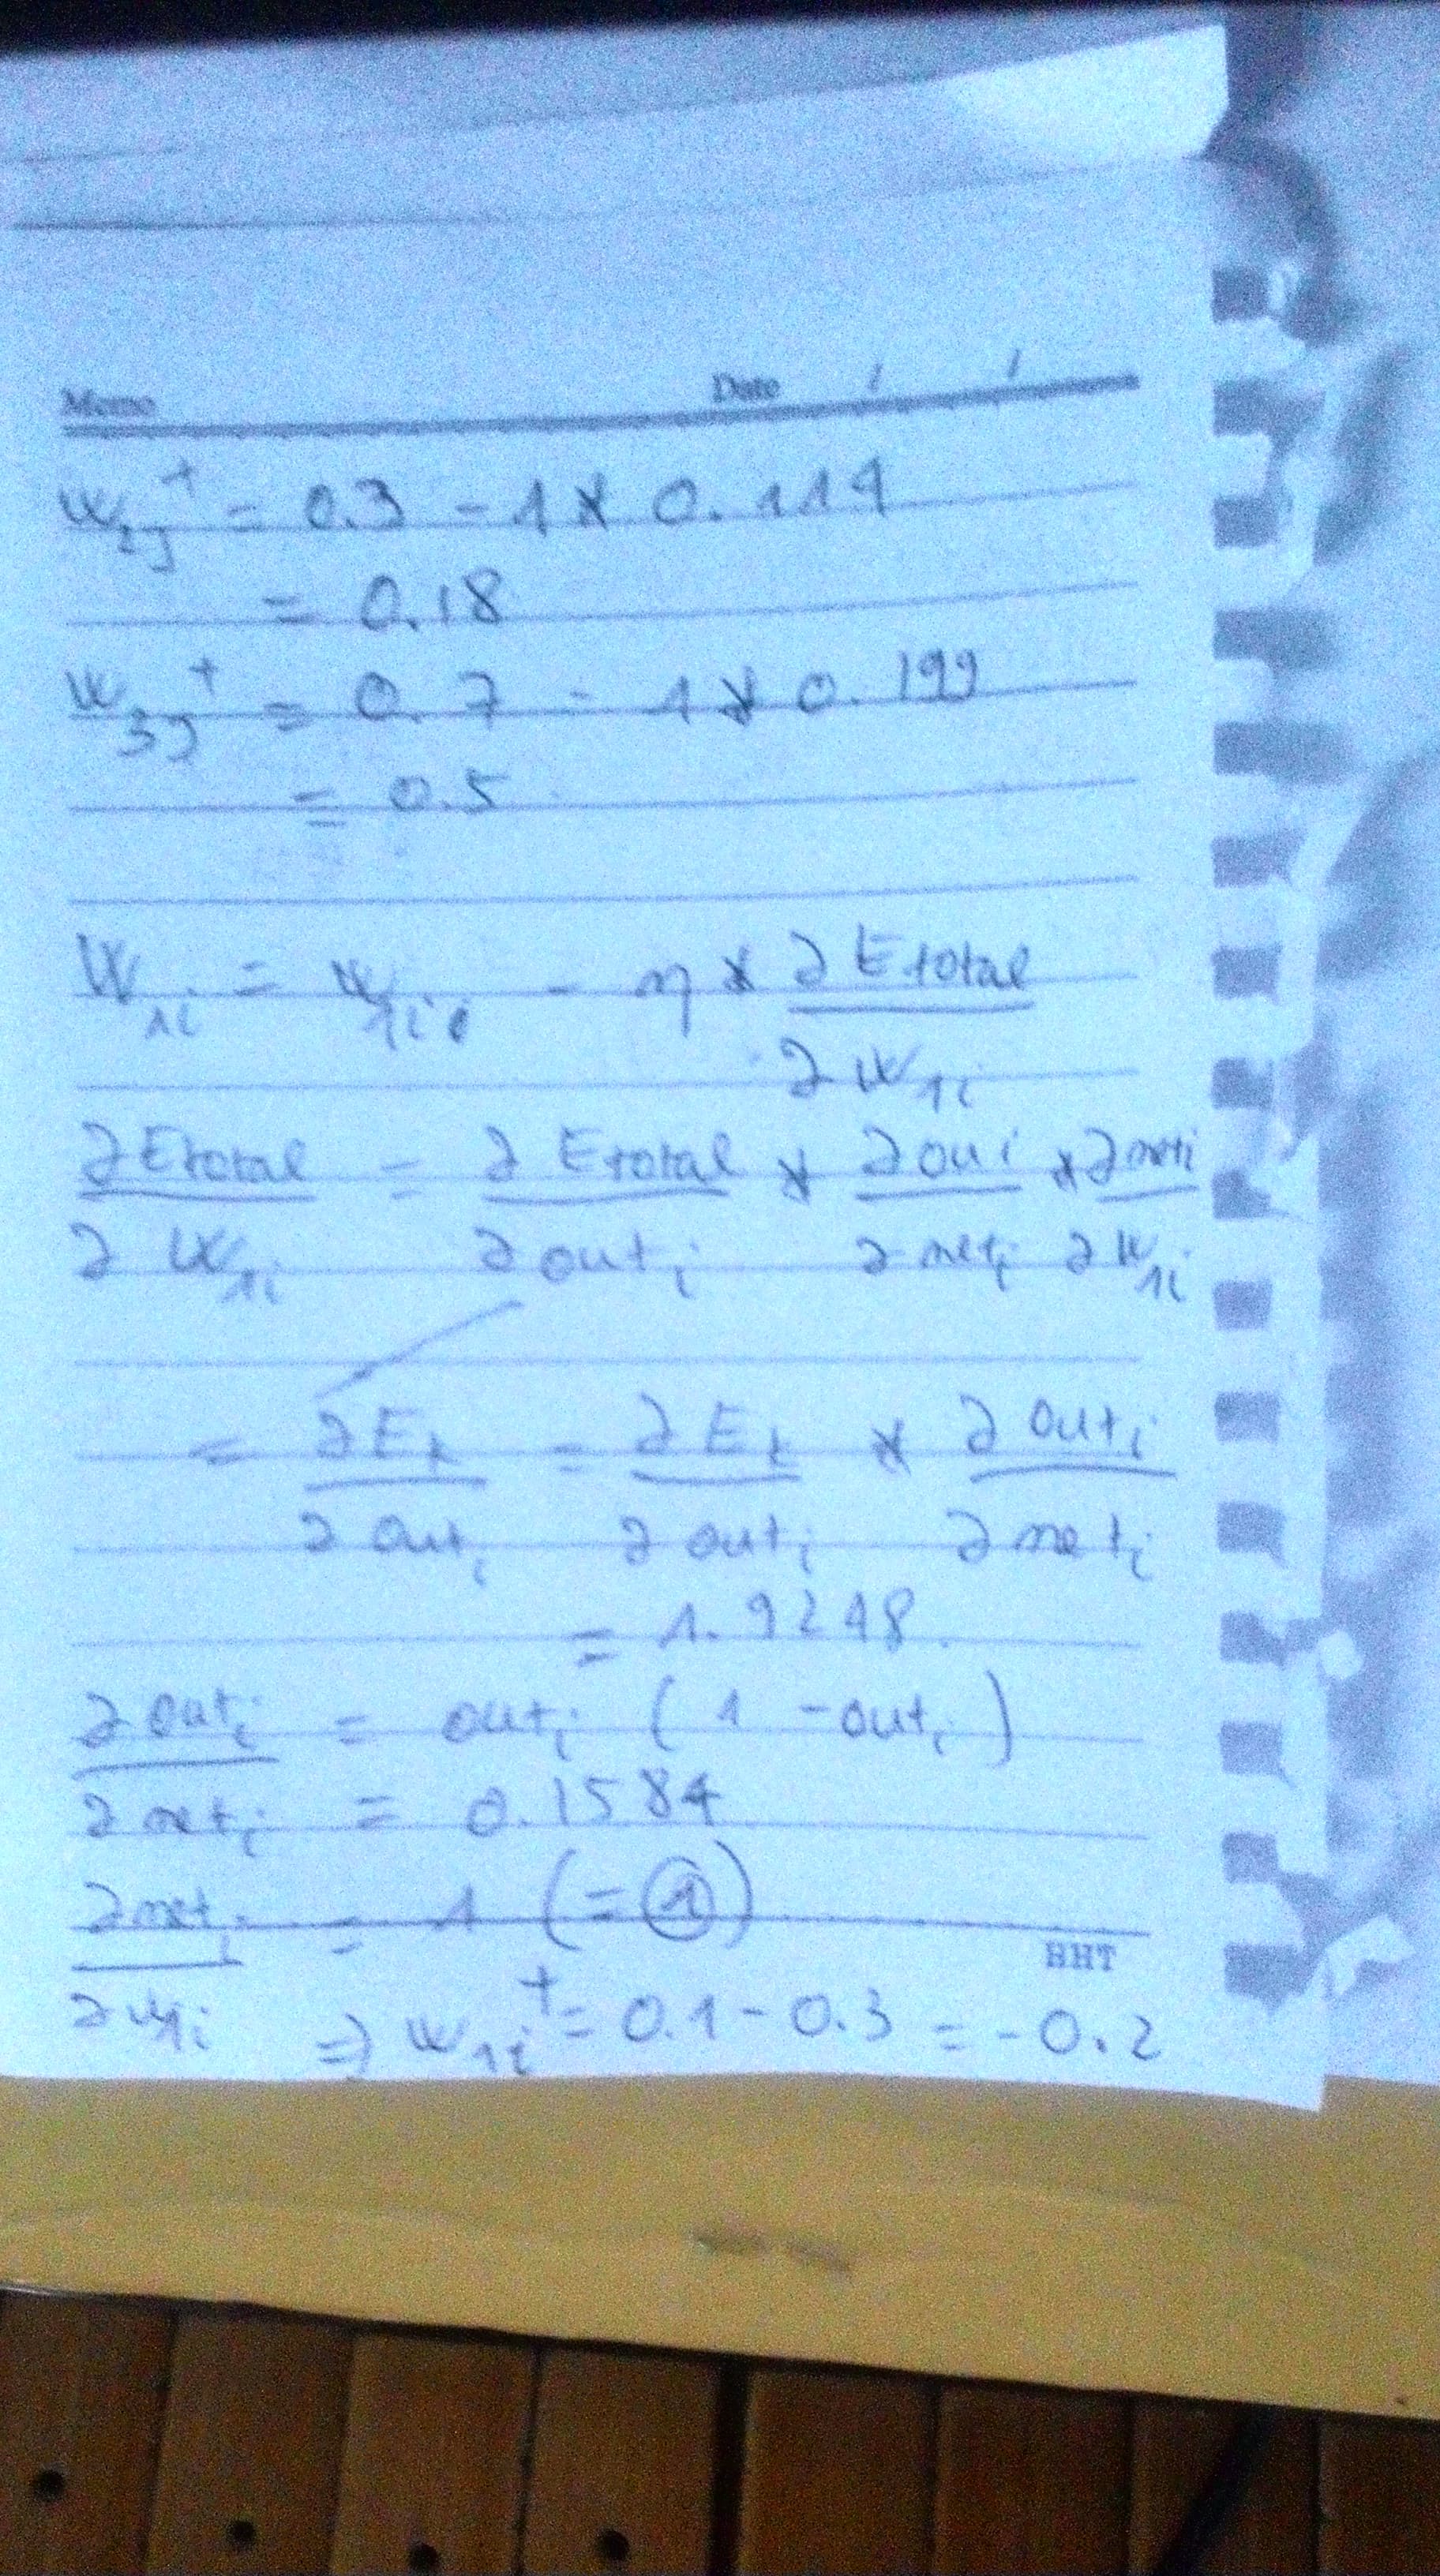 Memo Date / /
w₂ⱼ⁺ = 0.3 - 1 * 0.114
= 0.18
w₃ⱼ⁺ = 0.7 - 1 * 0.199
= 0.5
W₁ᵢ = w₁ᵢ - η * ∂Etotal / ∂w₁ᵢ
∂Etotal / ∂W₁ᵢ = ∂Etotal / ∂outᵢ * ∂oui / ∂netᵢ * ∂neti / ∂w₁ᵢ
= ∂Eₖ / ∂outᵢ = ∂Eₖ / ∂outᵢ * ∂outᵢ / ∂netᵢ
= 1.9248
∂outᵢ / ∂netᵢ = outᵢ (1 - outᵢ)
= 0.1584
∂netᵢ / ∂w₁ᵢ = 1 (= ①)
HHT
⇒ w₁ᵢ⁺ = 0.1 - 0.3 = -0.2